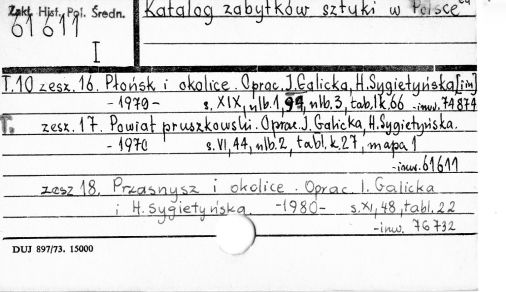 Zakł. Hist. Pol. Średn.
61611
I
Katalog zabytków sztuki w Polsce
T.10 zesz.16. Płońsk i okolice. Oprac. I. Galicka, H. Sygietyńska [in]
- 1979 - s. XIX, nlb.1, 94, nlb.3, tabl.k.66 - inw. 74874
T. zesz.17. Powiat pruszkowski. Oprac. I. Galicka, H. Sygietyńska.
- 1970 s. VI, 44, nlb.2, tabl.k.27, mapa 1
- inw. 61611
zesz 18. Przasnysz i okolice. Oprac. I. Galicka
i H. Sygietyńska -1980- s. XI, 48, tabl. 22
- inw. 76732
DUJ 897/73. 15000